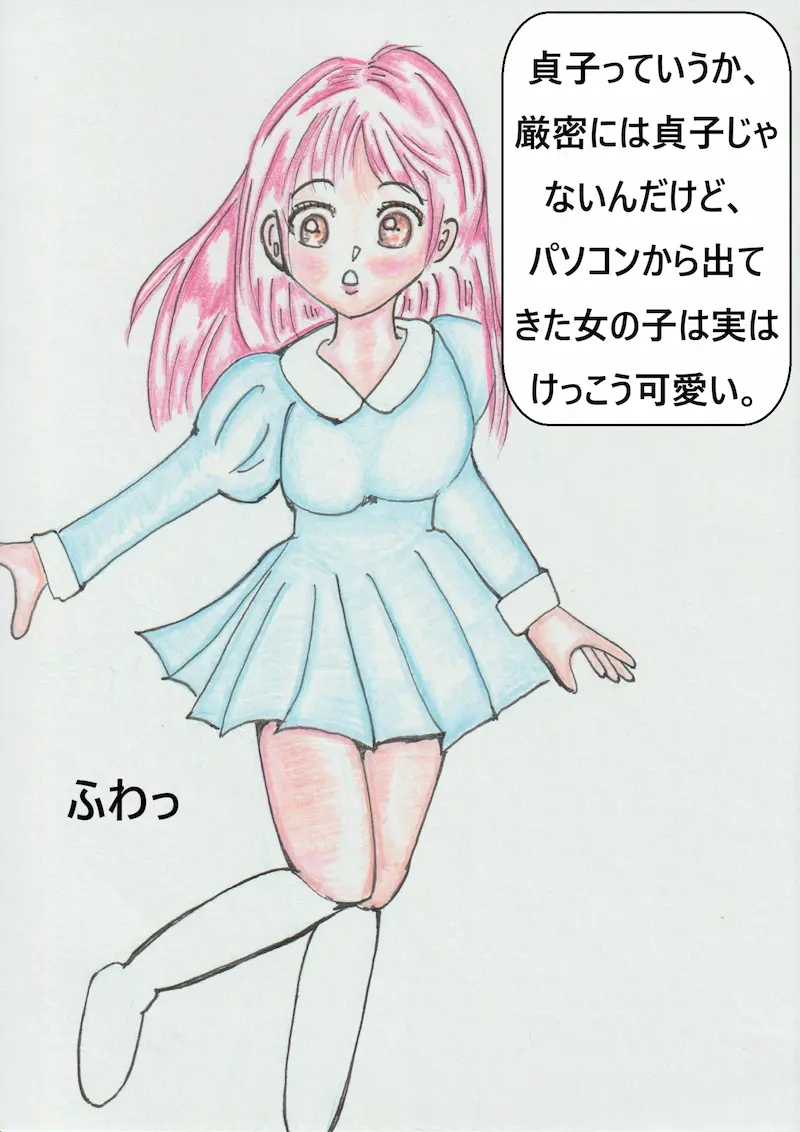 貞子っていうか、
厳密には貞子じゃ
ないんだけど、
パソコンから出て
きた女の子は実は
けっこう可愛い。
ふわっ